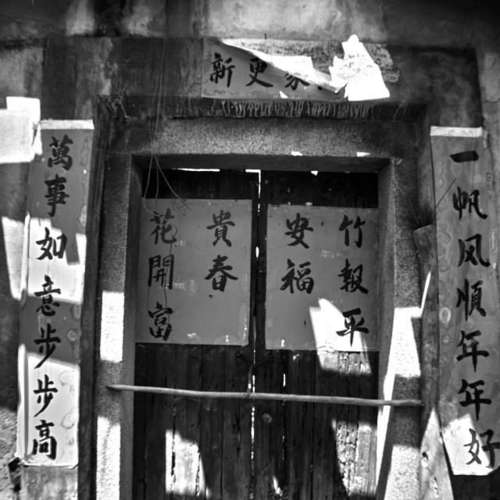 象更新
一帆风順年年好
竹報平
安福
花開富
貴春
萬事如意步步高